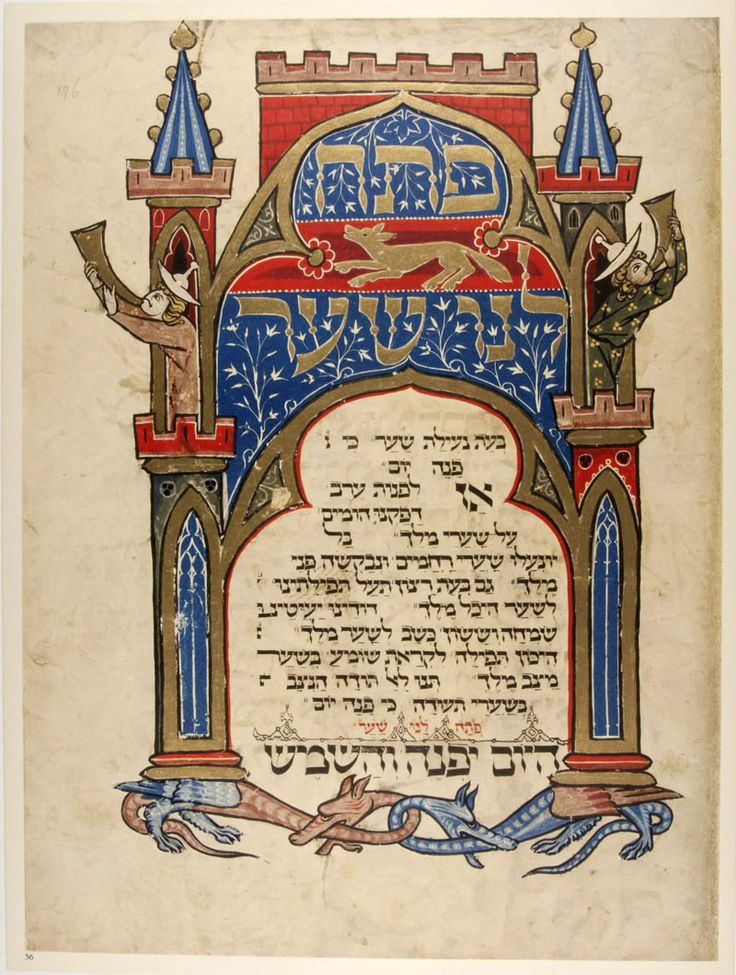 176
פתח
לנו שער
בעת נעילת שער כי
פנה יום
אז לפנות ערב
דפקנו הומים
על שערי מלך בל
יונעלו שערי רחמים ונבקשה פני
מלך גם בעת רצון תעל תפילתינו
לשער היכל מלך
שמחה וששון לשער מלך
היכון תפילה לקראת שומע בשער
מלך תנו תודה
בשערי תעודה כי פנה יום
פתח לנו שער
היום יפנה והשמש
56